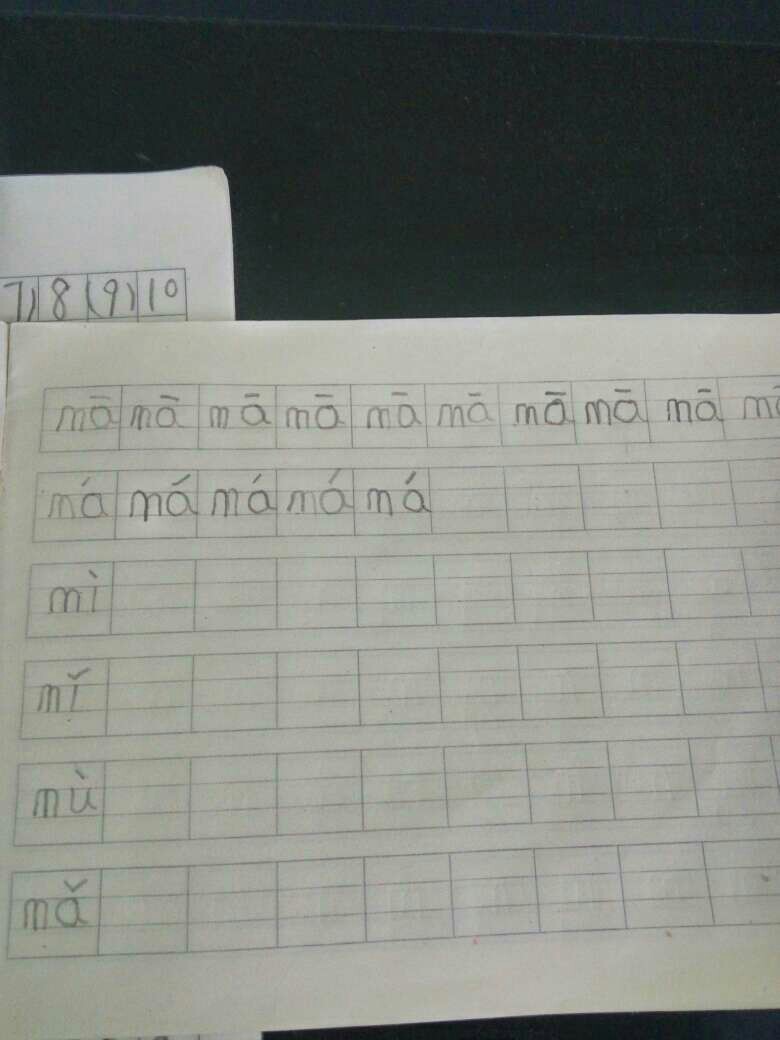 7) 8 (9) 10
mā mā mā mā mā mā mā mā mā mā
má má má má má
mì
mǐ
mù
mǎ